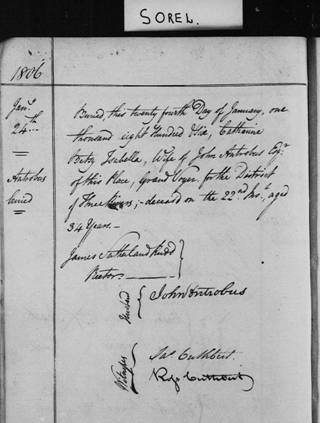 SOREL.
1806
Janʸ
24ᵗʰ
Antrobus
buried
Buried, this twenty fourth Day of January, one
thousand eight Hundred & Six, Catherine
Betsy Isabella, Wife of John Antrobus Esqʳ
of this Place, Grand Voyer for the District
of Three Rivers; - deceased on the 22ⁿᵈ Insᵗ, aged
34 Years. -
James Sutherland Rudd
Rector.
Husband
John Antrobus
Witnesses
Jaˢ Cuthbert.
Ross Cuthbert